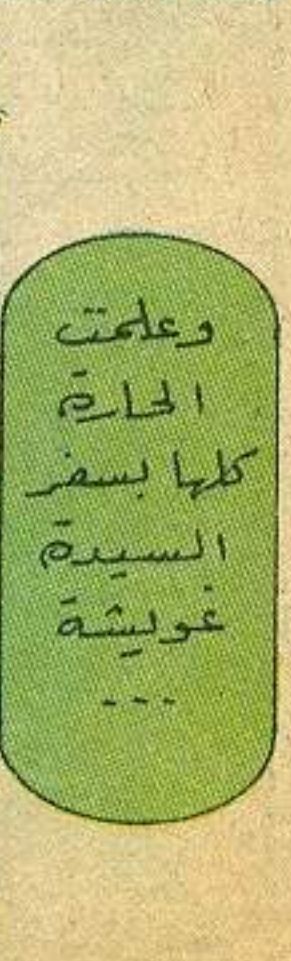 وعلمت
الحارة
كلها بسفر
السيدة
غويشة
...